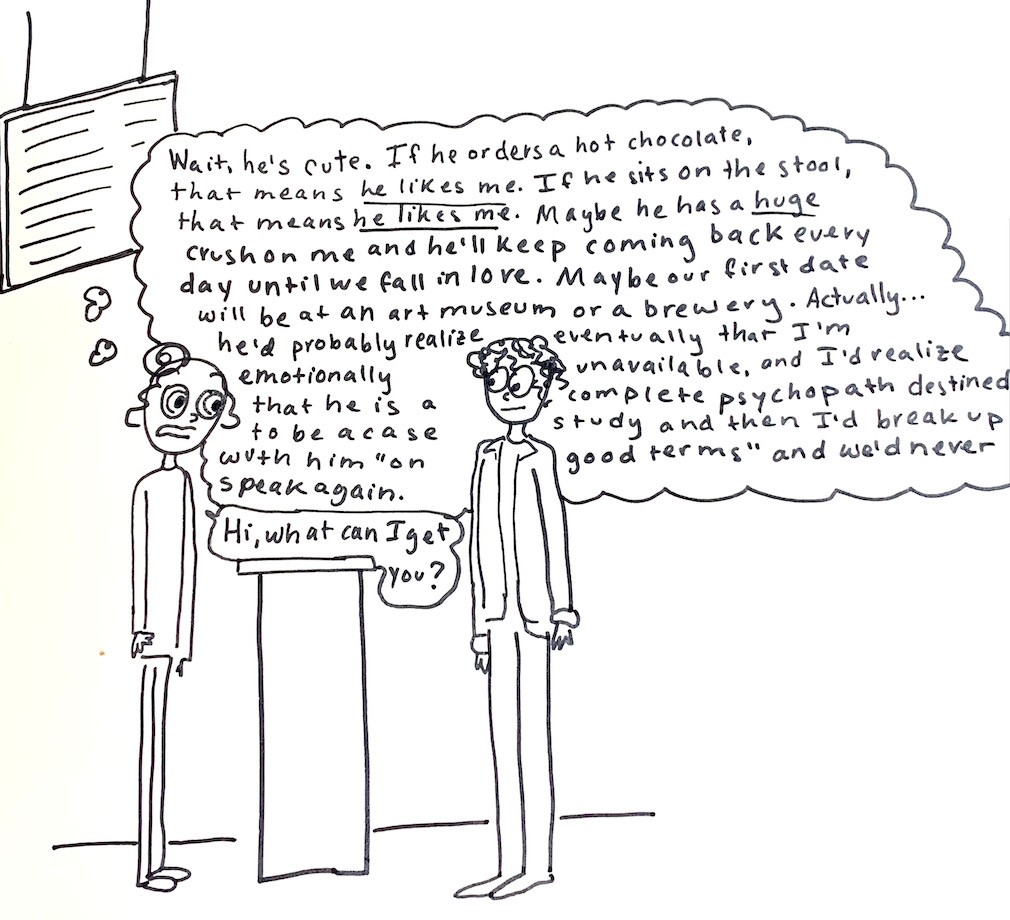 Wait, he's cute. If he orders a hot chocolate,
that means he likes me. If he sits on the stool,
that means he likes me. Maybe he has a huge
crush on me and he'll keep coming back every
day until we fall in love. Maybe our first date
will be at an art museum or a brewery. Actually...
he'd probably realize eventually that I'm
emotionally unavailable, and I'd realize
that he is a complete psychopath destined
to be a case study and then I'd break up
with him "on good terms" and we'd never
speak again.
Hi, what can I get
you?